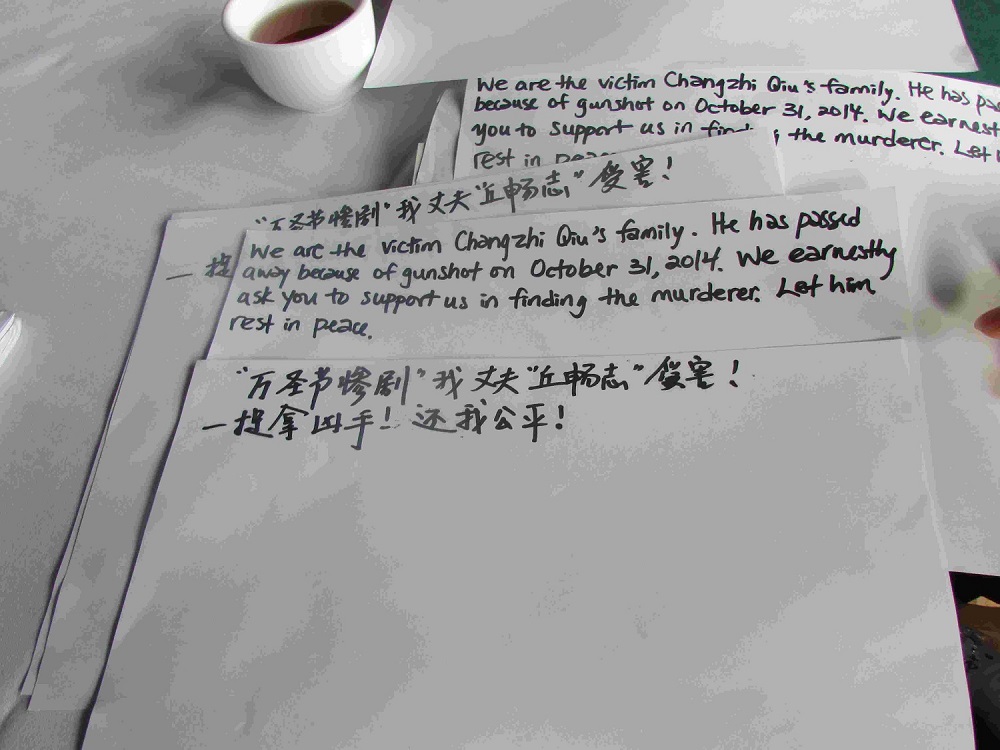 We are the victim Changzhi Qiu's family. He has
because of gunshot on October 31, 2014. We
you to support us in the murderer. Let
rest in peace
"万圣节惨剧"我丈夫"丘畅志"害!
—捉
We are the victim Changzhi Qiu's family. He has passed
away because of gunshot on October 31, 2014. We earnestly
ask you to support us in finding the murderer. Let him
rest in peace.
"万圣节惨剧"我丈夫"丘畅志"害!
—捉拿凶手!还我公平!